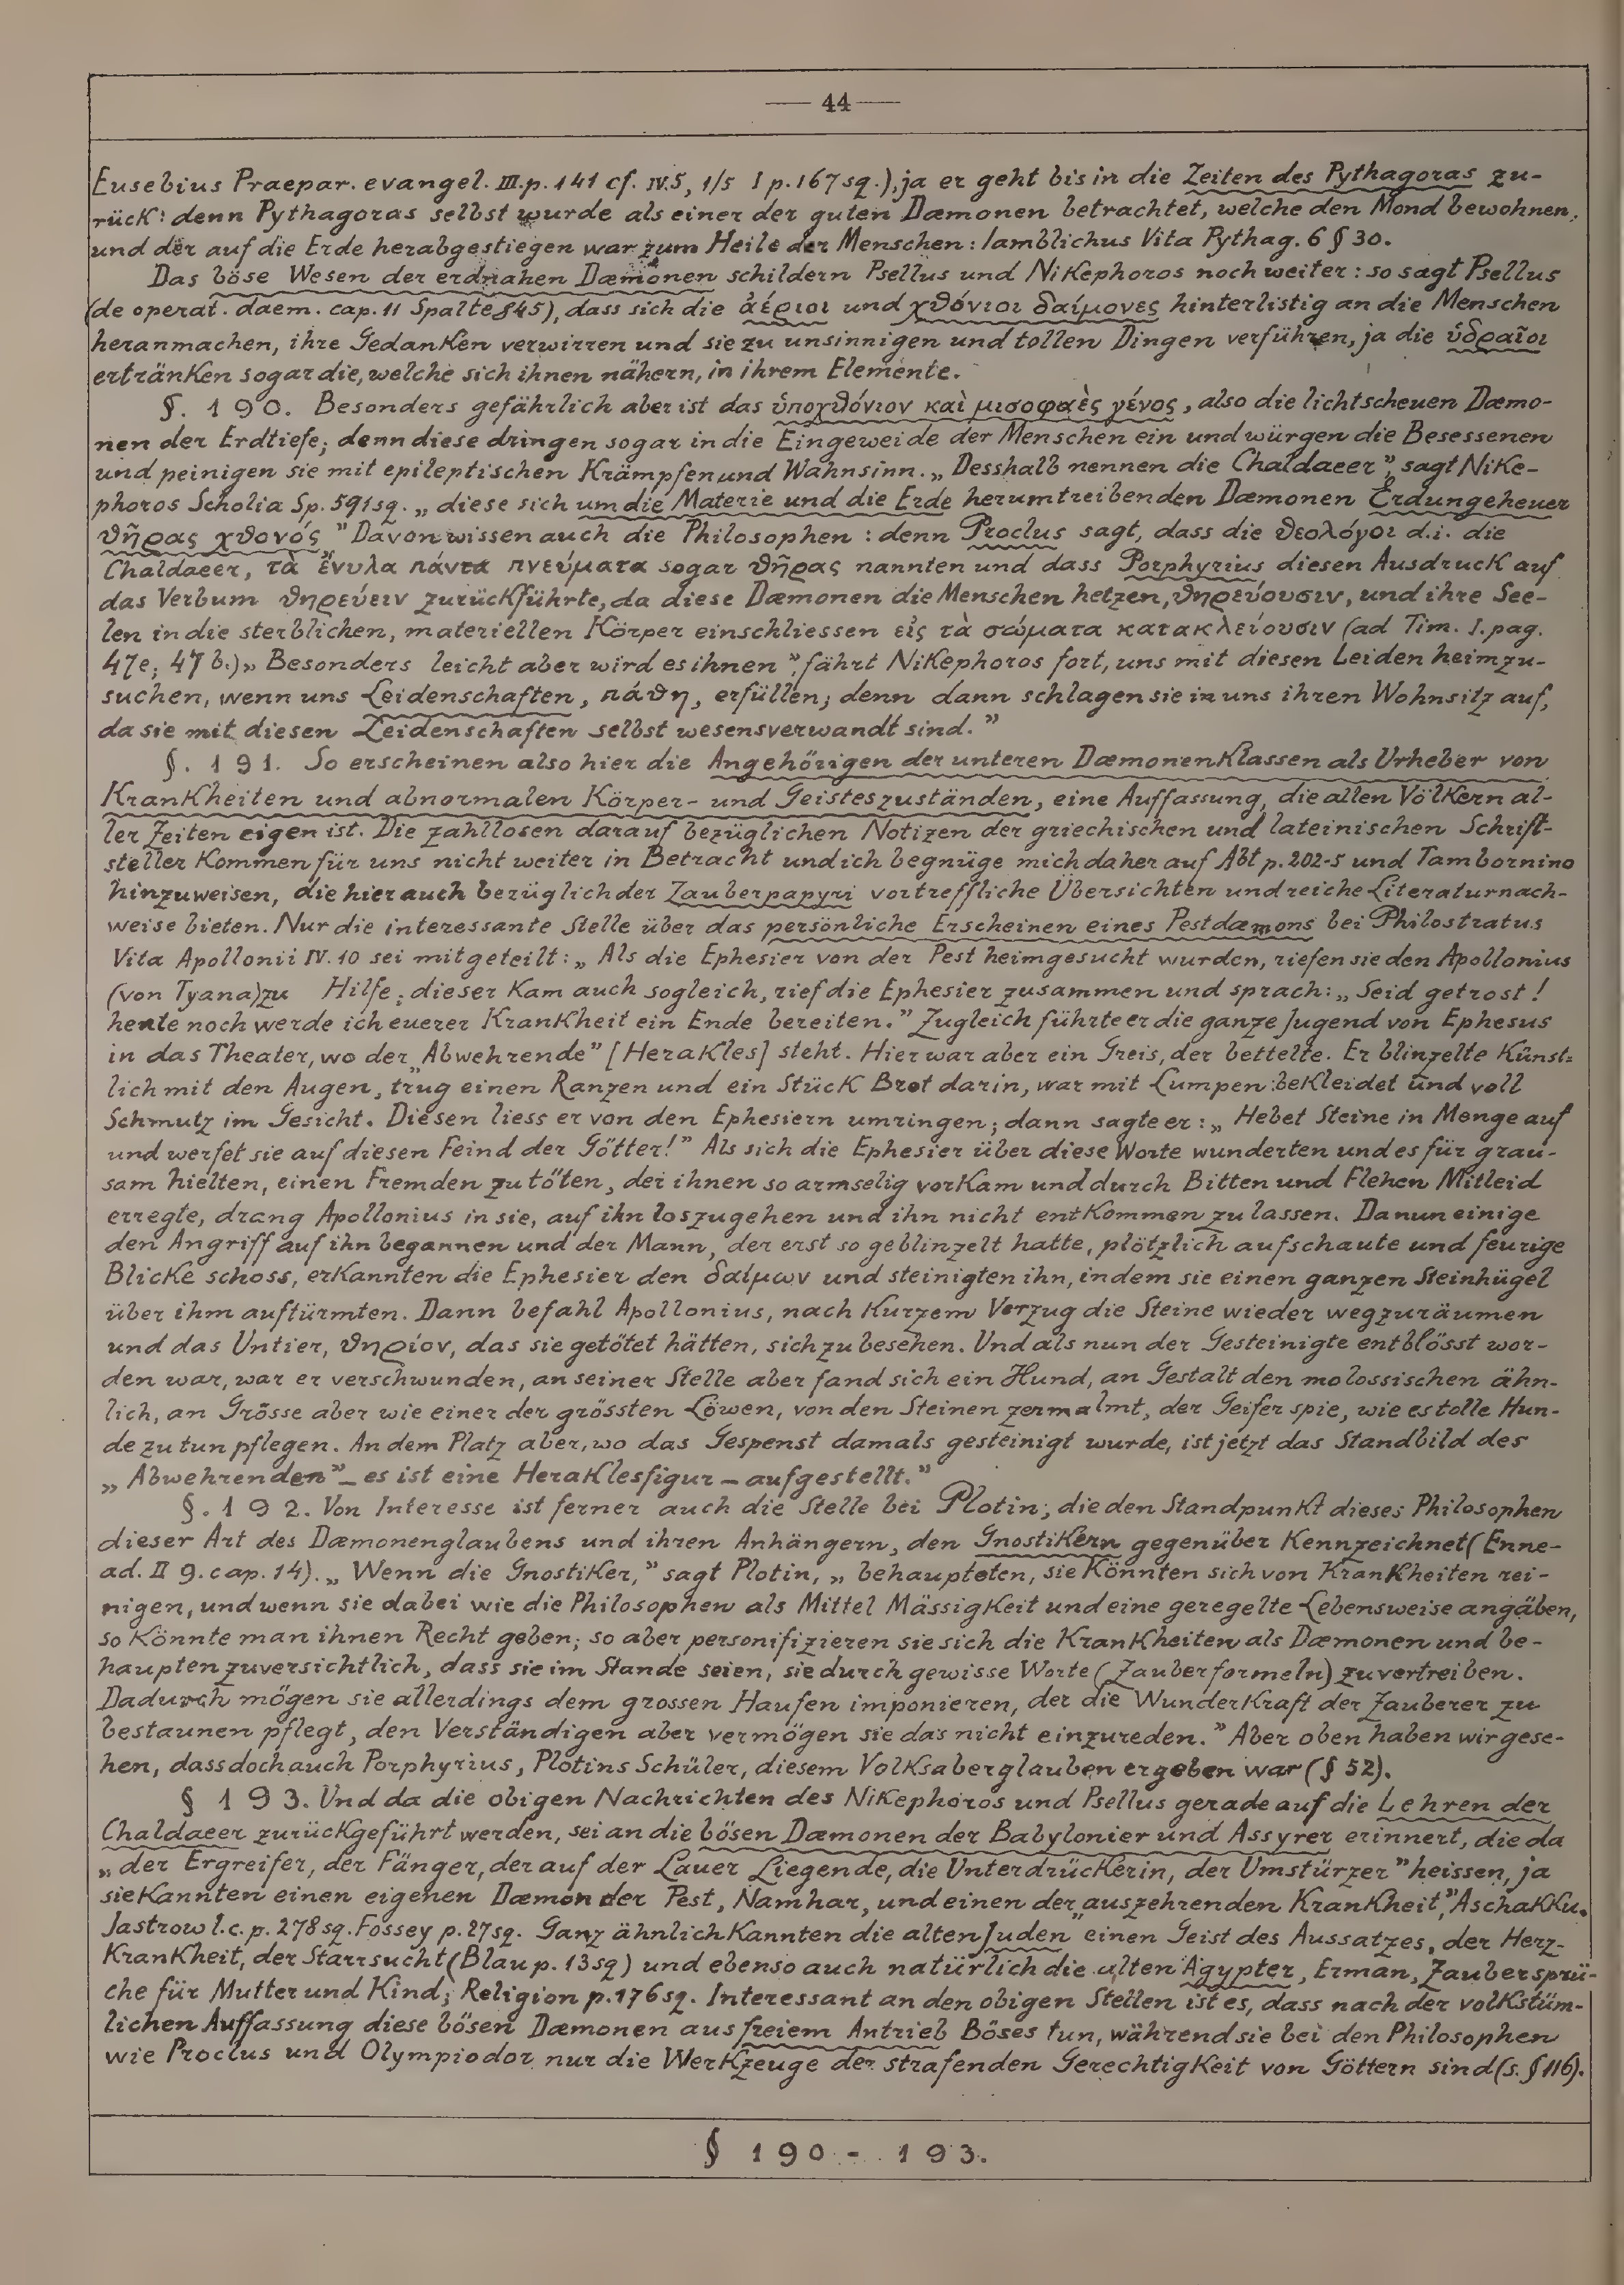 — 44 —
Eusebius Praepar. evangel. III. p. 141 cf. IV.5, 1/5 I p. 167 sq.), ja er geht bis in die Zeiten des Pythagoras zu-
rück: denn Pythagoras selbst wurde als einer der guten Dæmonen betrachtet, welche den Mond bewohnen,
und der auf die Erde herabgestiegen war zum Heile der Menschen: Iamblichus Vita Pythag. 6 § 30.
Das böse Wesen der erdnahen Dæmonen schildern Psellus und Nikephoros noch weiter: so sagt Psellus
(de operat. daem. cap. 11 Spalte 845), dass sich die ἀέριοι und χθόνιοι δαίμονες hinterlistig an die Menschen
heranmachen, ihre Gedanken verwirren und sie zu unsinnigen und tollen Dingen verführen, ja die ὑδραῖοι
ertränken sogar die, welche sich ihnen nähern, in ihrem Elemente.
§. 190. Besonders gefährlich aber ist das ὑποχθόνιον καὶ μισοφαὲς γένος, also die lichtscheuen Dæmo-
nen der Erdtiefe; denn diese dringen sogar in die Eingeweide der Menschen ein und würgen die Besessenen
und peinigen sie mit epileptischen Krämpfen und Wahnsinn. „Desshalb nennen die Chaldaeer”, sagt Nike-
phoros Scholia Sp. 591 sq. „diese sich um die Materie und die Erde herumtreibenden Dæmonen Erdungeheuer
θῆρας χθονός.” Davon wissen auch die Philosophen: denn Proclus sagt, dass die θεολόγοι d.i. die
Chaldaeer, τὰ ἔνυλα πάντα πνεύματα sogar θῆρας nannten und dass Porphyrius diesen Ausdruck auf
das Verbum θηρεύειν zurückführte, da diese Dæmonen die Menschen hetzen, θηρεύουσιν, und ihre See-
len in die sterblichen, materiellen Körper einschliessen εἰς τὰ σώματα κατακλείουσιν (ad Tim. I. pag.
47e; 47 b.) „Besonders leicht aber wird es ihnen”, fährt Nikephoros fort, uns mit diesen Leiden heimzu-
suchen, wenn uns Leidenschaften, πάθη, erfüllen; denn dann schlagen sie in uns ihren Wohnsitz auf,
da sie mit diesen Leidenschaften selbst wesensverwandt sind.”
§. 191. So erscheinen also hier die Angehörigen der unteren Dæmonenklassen als Urheber von
Krankheiten und abnormalen Körper- und Geisteszuständen, eine Auffassung, die allen Völkern al-
ler Zeiten eigen ist. Die zahllosen darauf bezüglichen Notizen der griechischen und lateinischen Schrift-
steller kommen für uns nicht weiter in Betracht und ich begnüge mich daher auf Abt p. 202-5 und Tambornino
hinzuweisen, die hier auch bezüglich der Zauberpapyri vortreffliche Übersichten und reiche Literaturnach-
weise bieten. Nur die interessante Stelle über das persönliche Erscheinen eines Pestdæmons bei Philostratus
Vita Apollonii IV. 10 sei mitgeteilt: „Als die Ephesier von der Pest heimgesucht wurden, riefen sie den Apollonius
(von Tyana) zu Hilfe; dieser kam auch sogleich, rief die Ephesier zusammen und sprach: „Seid getrost!
heute noch werde ich euerer Krankheit ein Ende bereiten.” Zugleich führte er die ganze Jugend von Ephesus
in das Theater, wo der „Abwehrende” [Herakles] steht. Hier war aber ein Greis, der bettelte. Er blinzelte künst-
lich mit den Augen, trug einen Ranzen und ein Stück Brot darin, war mit Lumpen bekleidet und voll
Schmutz im Gesicht. Diesen liess er von den Ephesiern umringen; dann sagte er: „Hebet Steine in Menge auf
und werfet sie auf diesen Feind der Götter!” Als sich die Ephesier über diese Worte wunderten und es für grau-
sam hielten, einen Fremden zu töten, der ihnen so armselig vorkam und durch Bitten und Flehen Mitleid
erregte, drang Apollonius in sie, auf ihn loszugehen und ihn nicht entkommen zu lassen. Da nun einige
den Angriff auf ihn begannen und der Mann, der erst so geblinzelt hatte, plötzlich aufschaute und feurige
Blicke schoss, erkannten die Ephesier den δαίμων und steinigten ihn, indem sie einen ganzen Steinhügel
über ihm auftürmten. Dann befahl Apollonius, nach kurzem Verzug die Steine wieder wegzuräumen
und das Untier, θηρίον, das sie getötet hätten, sich zu besehen. Und als nun der Gesteinigte entblösst wor-
den war, war er verschwunden, an seiner Stelle aber fand sich ein Hund, an Gestalt den molossischen ähn-
lich, an Grösse aber wie einer der grössten Löwen, von den Steinen zermalmt, der Geifer spie, wie es tolle Hun-
de zu tun pflegen. An dem Platz aber, wo das Gespenst damals gesteinigt wurde, ist jetzt das Standbild des
„Abwehrenden” – es ist eine Heraklesfigur – aufgestellt.”
§. 192. Von Interesse ist ferner auch die Stelle bei Plotin, die den Standpunkt dieses Philosophen
dieser Art des Dæmonenglaubens und ihren Anhängern, den Gnostikern gegenüber kennzeichnet (Enne-
ad. II 9. cap. 14). „Wenn die Gnostiker,” sagt Plotin, „behaupteten, sie könnten sich von Krankheiten rei-
nigen, und wenn sie dabei wie die Philosophen als Mittel Mässigkeit und eine geregelte Lebensweise angäben,
so könnte man ihnen Recht geben; so aber personifizieren sie sich die Krankheiten als Dæmonen und be-
haupten zuversichtlich, dass sie im Stande seien, sie durch gewisse Worte (Zauberformeln) zu vertreiben.
Dadurch mögen sie allerdings dem grossen Haufen imponieren, der die Wunderkraft der Zauberer zu
bestaunen pflegt, den Verständigen aber vermögen sie das nicht einzureden.” Aber oben haben wir gese-
hen, dass doch auch Porphyrius, Plotins Schüler, diesem Volksaberglauben ergeben war (§ 52).
§ 193. Und da die obigen Nachrichten des Nikephoros und Psellus gerade auf die Lehren der
Chaldaeer zurückgeführt werden, sei an die bösen Dæmonen der Babylonier und Assyrer erinnert, die da
„der Ergreifer, der Fänger, der auf der Lauer Liegende, die Unterdrückerin, der Umstürzer” heissen, ja
sie kannten einen eigenen Dæmon der Pest, Namhar, und einen der „auszehrenden Krankheit,” Aschakku.
Jastrow l.c. p. 278 sq. Fossey p. 27 sq. Ganz ähnlich kannten die alten Juden einen Geist des Aussatzes, der Herz-
krankheit, der Starrsucht (Blau p. 13 sq) und ebenso auch natürlich die alten Ägypter, Erman, Zaubersprü-
che für Mutter und Kind; Religion p. 176 sq. Interessant an den obigen Stellen ist es, dass nach der volkstüm-
lichen Auffassung diese bösen Dæmonen aus freiem Antrieb Böses tun, während sie bei den Philosophen
wie Proclus und Olympiodor nur die Werkzeuge der strafenden Gerechtigkeit von Göttern sind (s. § 116).
§ 190 - 193.